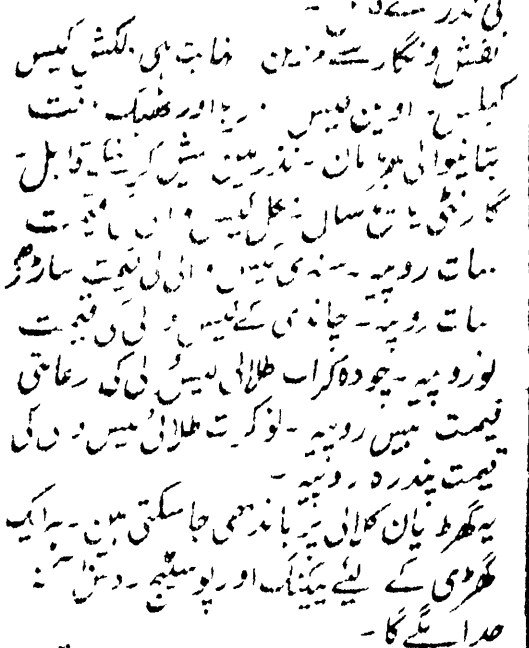 کی نذر
نقش و نگار سے مزین نہایت ہی دلکش کیس
اوپن فیس اور ٹھیک وقت
بتانیوالی گھڑیاں۔ نذر میں پیش کرنیکے قابل۔
گارنٹی پانچ سال۔ نکل کیس والی کی قیمت
سات روپیہ۔ سنہری کیس والی کی قیمت ساڑھے
سات روپیہ۔ چاندی کے کیس والی کی قیمت
نو روپیہ۔ چودہ کراٹ طلائی کیس والی کی رعائتی
قیمت بیس روپیہ۔ نو کرٹ طلائی کیس والی کی
قیمت پندرہ روپیہ۔
یہ گھڑیان کلائی پر باندھی جا سکتی ہین۔ ہر ایک
گھڑی کے لئے پیکینگ اور پوسٹیج
جدا لگے گا۔